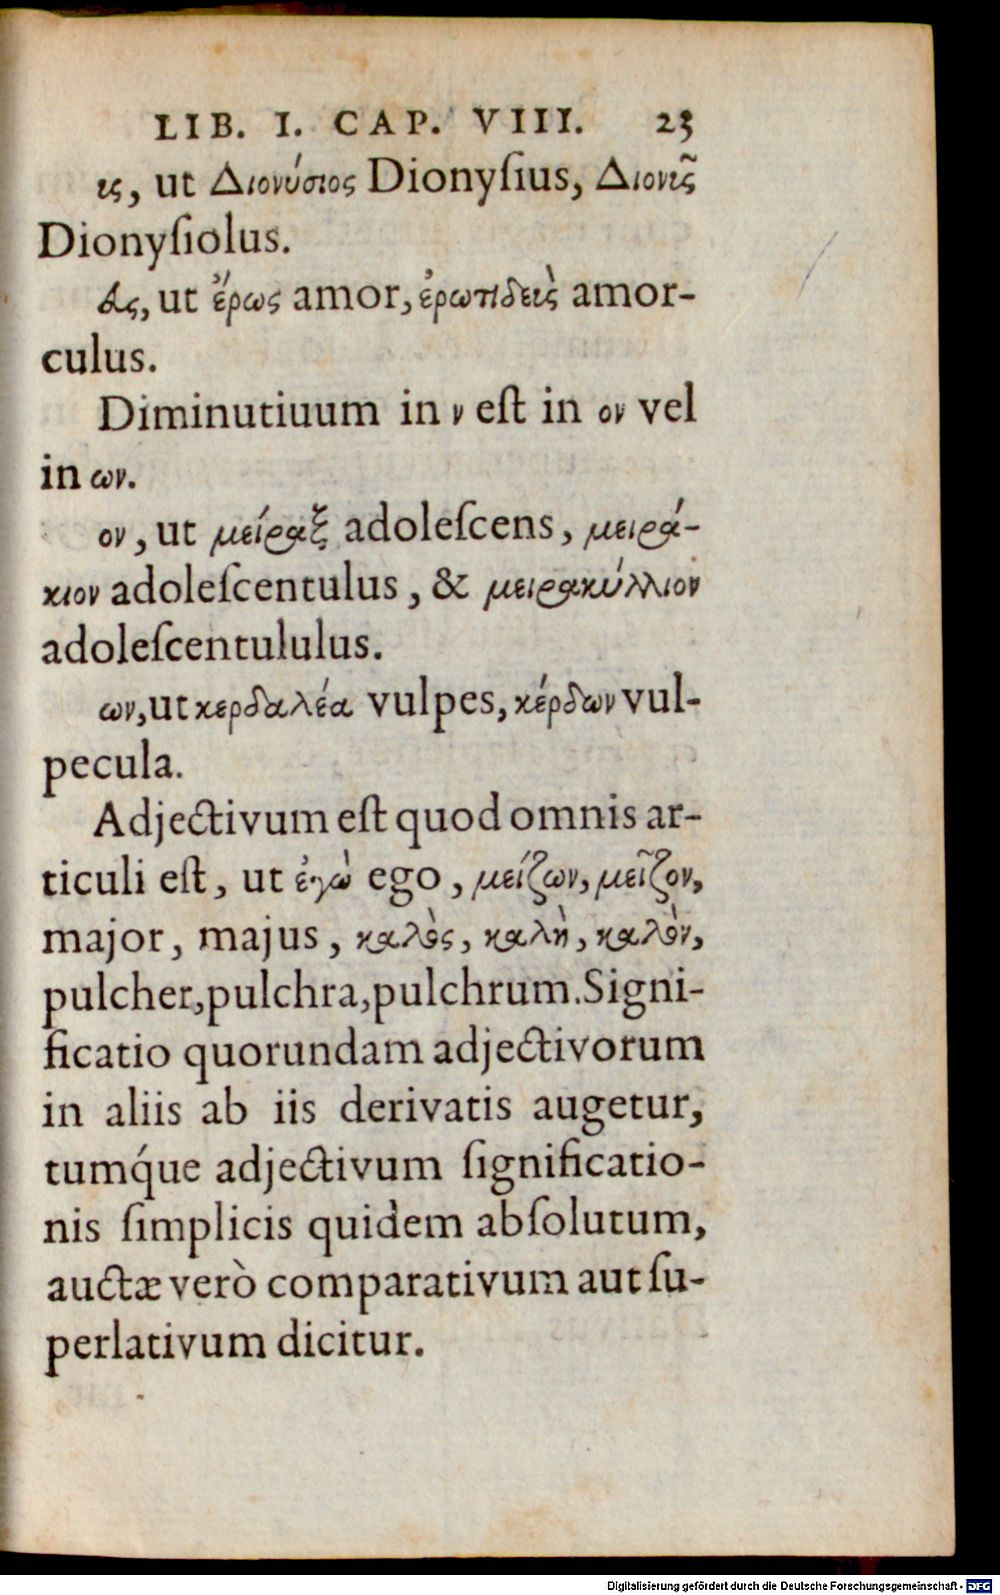 LIB. I. CAP. VIII. 23
ις, ut Διονύσιος Dionyſius, Διονῖς
Dionyſiolus.
ut ἔρως amor, ἐρωτιδεὶς amor-
culus.
Diminutiuum in ν eſt in ον vel
in ων.
ον, ut μείραξ adoleſcens, μειρά-
κιον adoleſcentulus, & μειρακύλλιον
adoleſcentululus.
ων, ut κερδαλέα vulpes, κέρδων vul-
pecula.
Adjectivum eſt quod omnis ar-
ticuli eſt, ut ἐγὼ ego, μείζων, μεῖζον,
major, majus, καλὸς, καλὴ, καλὸν,
pulcher, pulchra, pulchrum. Signi-
ficatio quorundam adjectivorum
in aliis ab iis derivatis augetur,
tumq́ue adjectivum ſignificatio-
nis ſimplicis quidem abſolutum,
auctæ verò comparativum aut ſu-
perlativum dicitur.
Digitalisierung gefördert durch die Deutsche Forschungsgemeinschaft - DFG